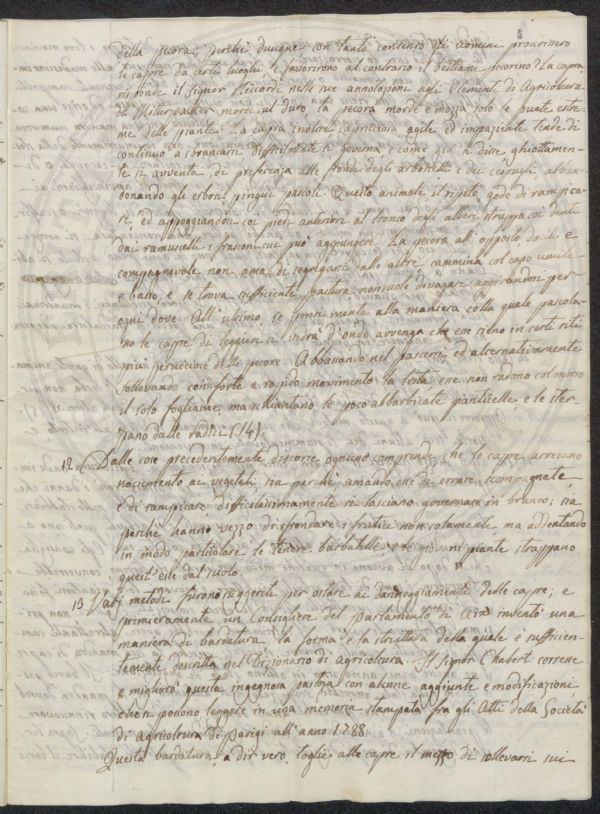 della pecora; perchè dunque con tanto consenso gli uomini proscrissero
le capre da certi luoghi, e favorirono al contrario il bestiame pecorino? La capra,
risponde il Signor Riccardi nelle sue annotazioni agli Elementi di Agricoltura
di Mitterpacher mordi sul duro, la pecora morde e mozza solo le punte estre-
me delle piante. La capra inoltre capricciosa agile ed impaziente tende di
continuo a sbrancarsi difficilmente si governa e come già si disse ghiottamen-
te si avventa di preferenza alle frondi degli arboscelli e dei cespugli abban-
donando gli erbosi pingui pascoli. Questo animale il ripeto gode di rampica-
re, ed appoggiandosi coi piedi anteriori al tronco degli alberi strappa coi denti
dai ramuscelli i frasconi cui può aggiungere. La pecora all'opposto docile e
compagnevole non ama di segregarsi dalle altre cammina col capo umile
e basso, e se trova sufficiente pastura non suole divagare aggirandosi per
ogni dove. All'ultimo se ponsi mente alla maniera colla quale pascola-
no le capre di leggieri si vedrà d'onde avvenga che esse sieno in certi siti
più perniciose delle pecore. Abbassando nel pascersi ed alternativamente
sollevando con forte e rapido movimento la testa esse non radono col morso
il solo fogliame, ma schiantano le poco abbarbicate pianticelle, e le ster-
pano dalle radici (14).
12. Dalle cose precedentemente discorse ognuno comprende che le capre arrecano
nocumento ai vegetali sia perchè amando esse di errare scompagnate
e di rampicare difficilissimamente si lasciano governare in branco; sia
perchè hanno vezzo di sfrondare i frutici non solamente ma addentando
in modo particolare le tenere barbatelle e le giovani piante strappano
quest'esse dal suolo.
13. Varj metodi furono suggeriti per ostare ai danneggiamenti delle capre; e
primieramente un Consigliere del parlamento di Aix inventò una
maniera di bardatura la forma e la struttura della quale è sufficien-
temente descritta nel Dizionario di agricoltura. Il Signor Chabert corresse
e migliorò questa ingegnosa pastoja con alcune aggiunte e modificazioni
che si possono leggere in una memoria stampata fra gli Atti della Società
di Agricoltura di Parigi all'anno 1788.
Questa bardatura a dir vero toglie alle capre il mezzo di sollevarsi sui